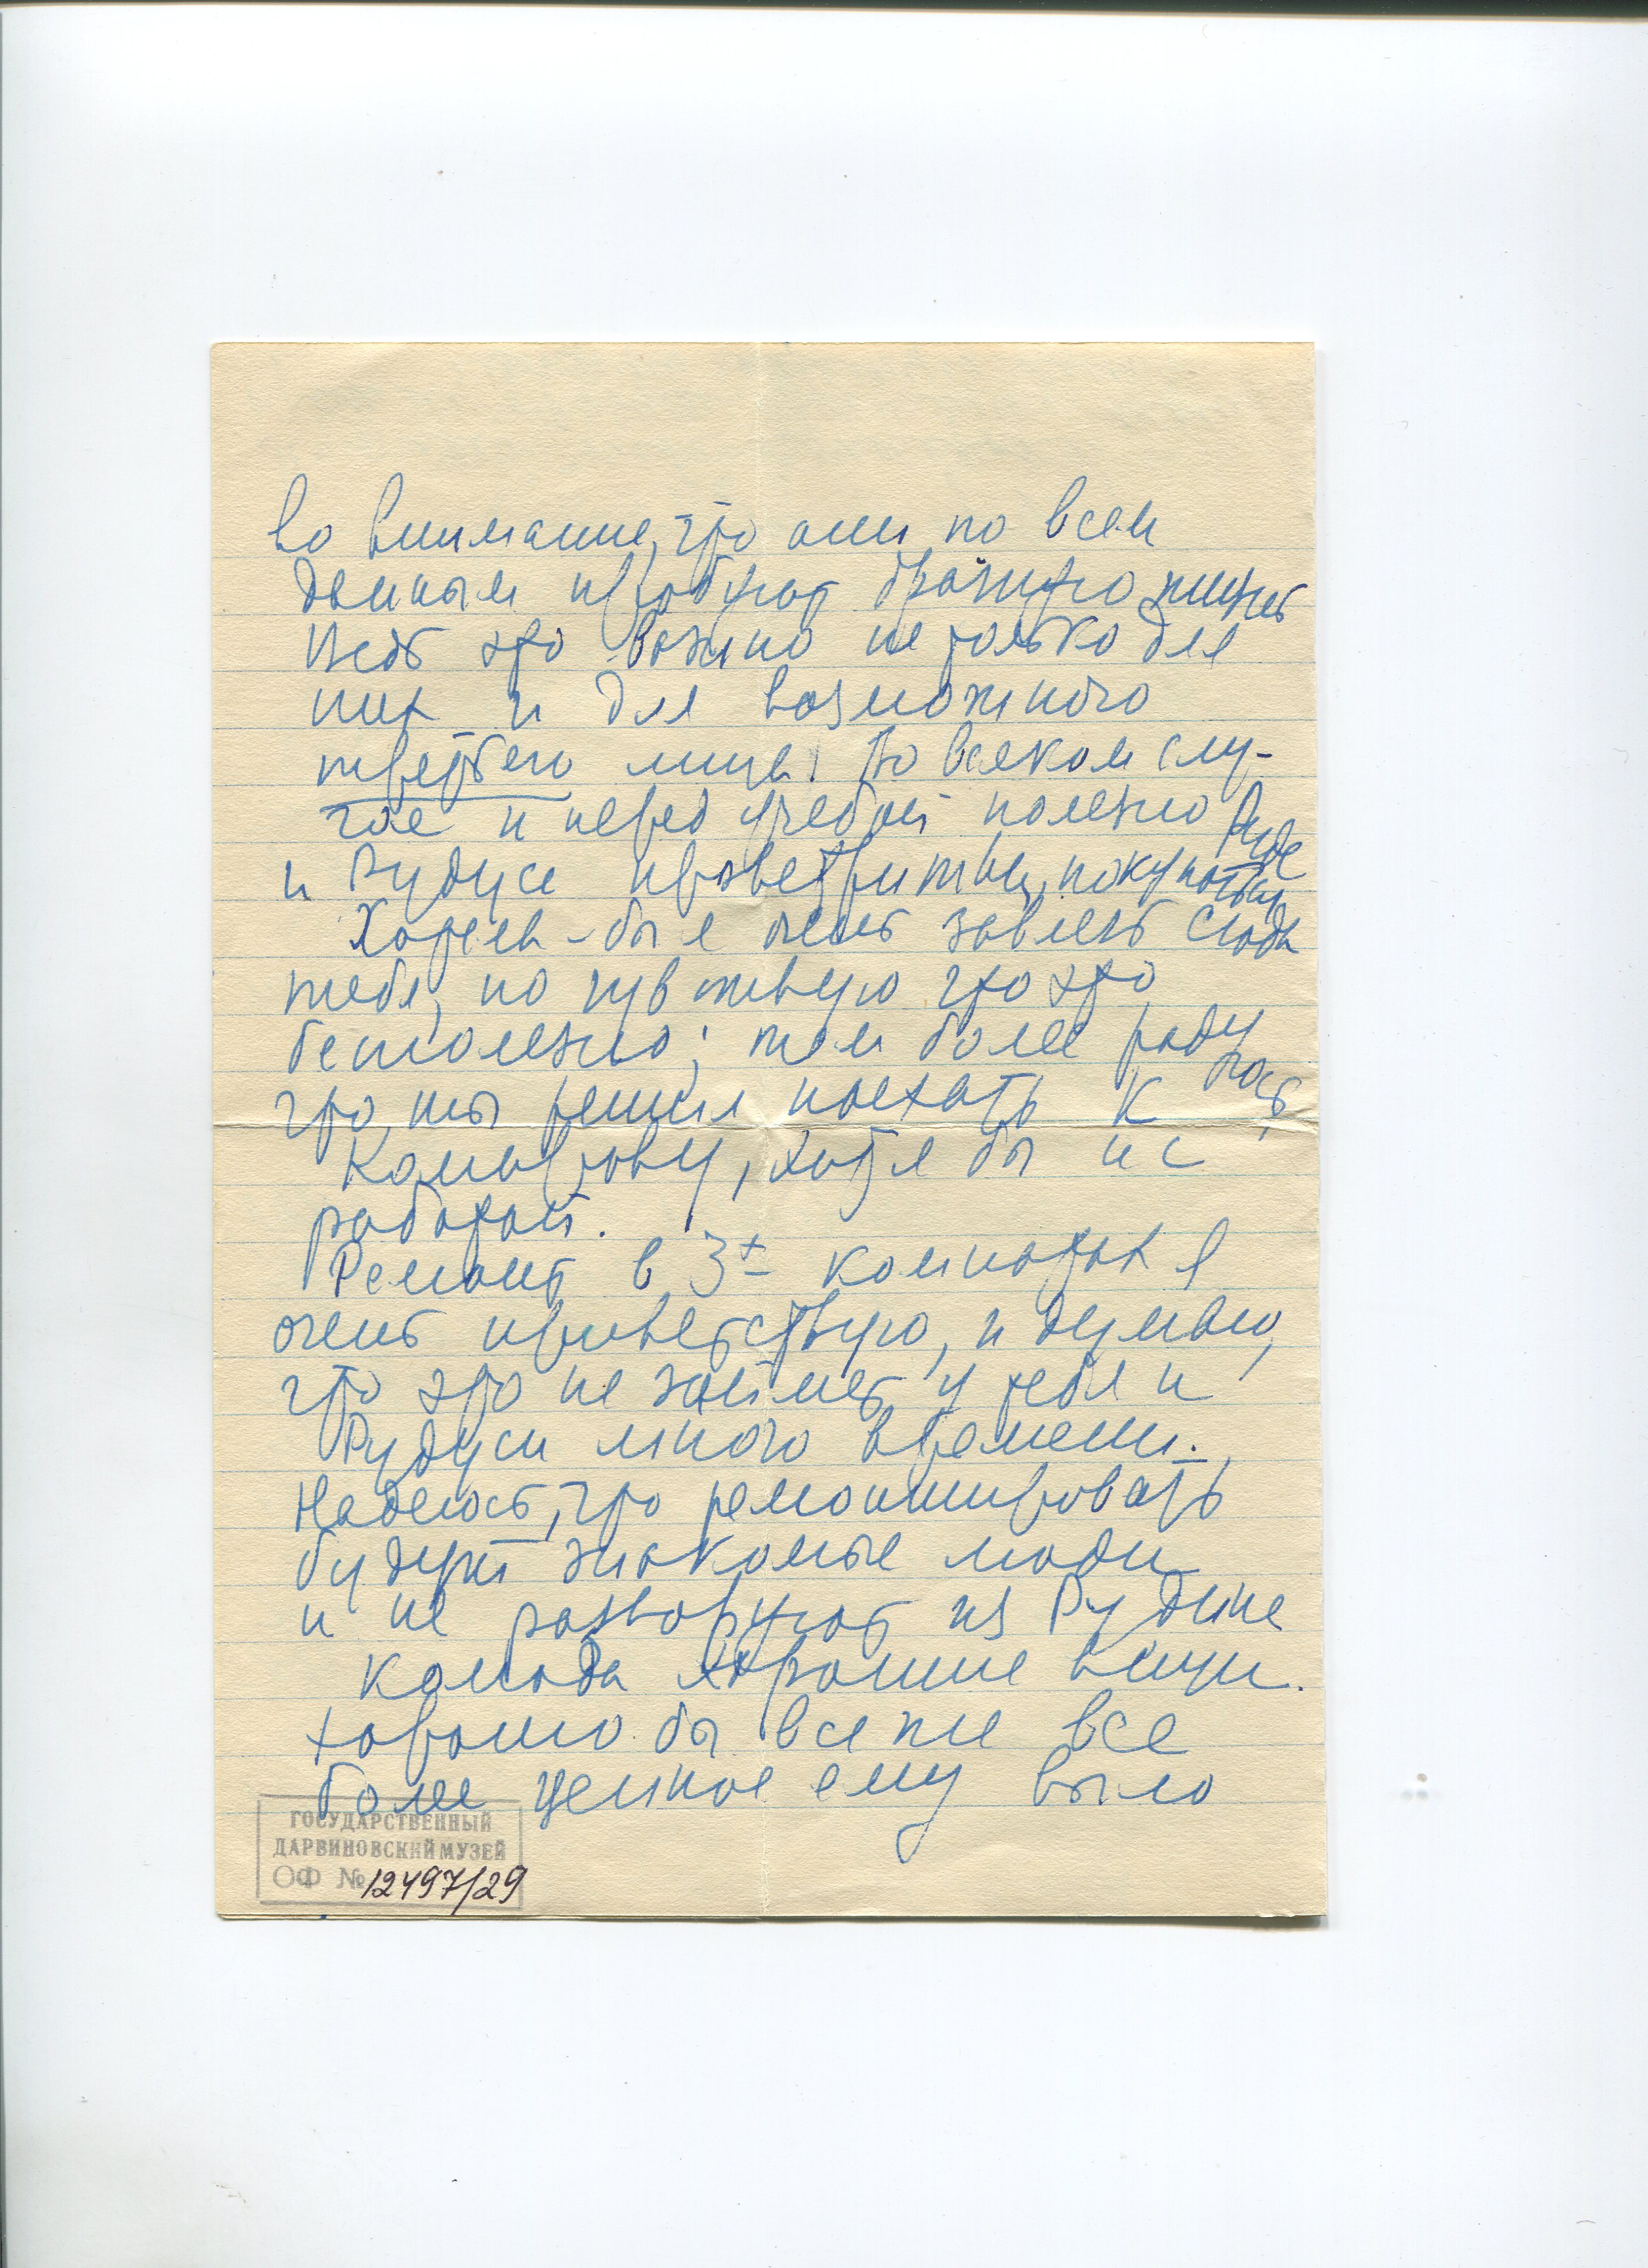 во внимание, что они по всем
данным пробуют брачную жизнь
Ведь это важно не только для
них и для возможного
третьего лица! Во всяком слу-
чае и перед учебой полезно Руде
и Рудусе проветриться, покупаться
Хотела-бы я очень завлечь сюда
тебя, но чувствую что это
бесполезно; тем более рада
что ты решил поехать к
Комарову, хотя бы и с
работой.
Ремонт в 3х комнатах я
очень приветствую, и думаю,
что это не займет у тебя и
Рудуси много времени.
Надеюсь, что ремонтировать
будут знакомые люди
и не разворуют из Рудине
комода хорошие вещи.
Хорошо бы все же все
более ценное ему было
ГОСУДАРСТВЕННЫЙ
ДАРВИНОВСКИЙ МУЗЕЙ
ОФ № 12497/29